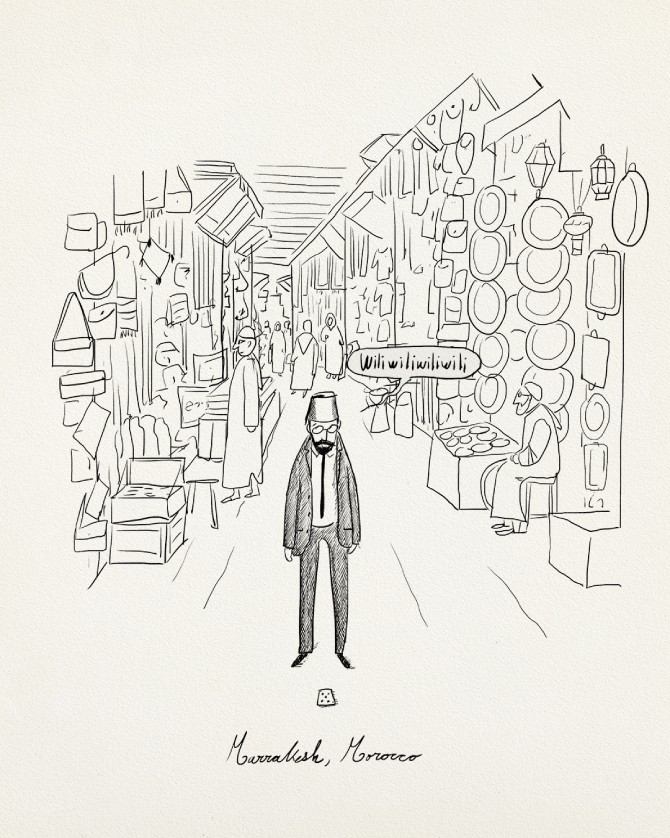 Wiliwiliwiliwili
Marrakesh, Morocco